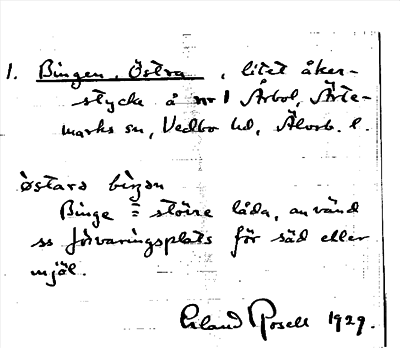 1. Bingen, Östra, litet åker-
stycke å nr 1 Årbol, Ärte-
marks sn, Vedbo hd, Älvsb. l.
östara biŋən
Binge = större låda, använd
ss förvaringsplats för säd eller
mjöl.
Erland Rosell 1929.